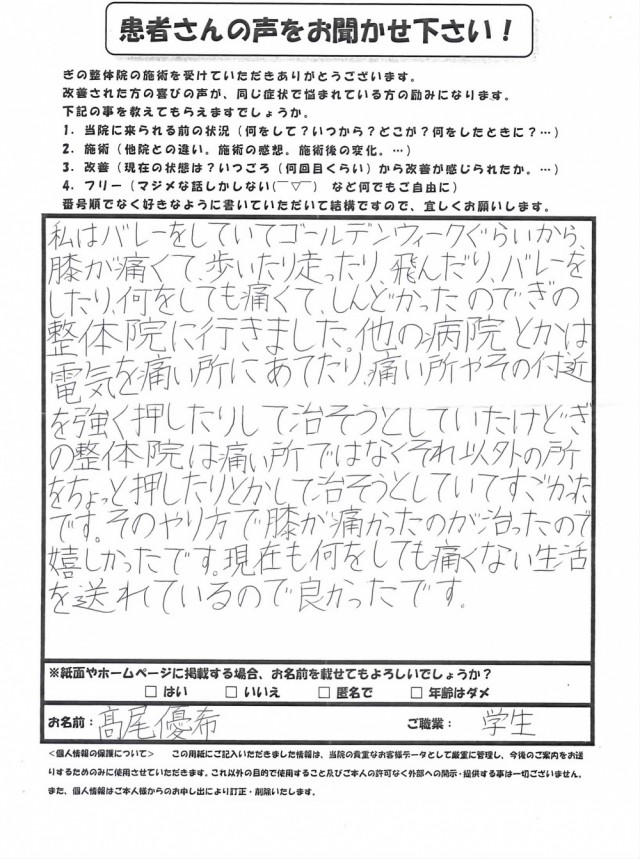 患者さんの声をお聞かせ下さい！
ぎの整体院の施術を受けていただきありがとうございます。
改善された方の喜びの声が、同じ症状で悩まれている方の励みになります。
下記の事を教えてもらえますでしょうか。
1. 当院に来られる前の状況（何をして？いつから？どこが？何をしたときに？…）
2. 施術（他院との違い。施術の感想。施術後の変化。…）
3. 改善（現在の状態は？いつごろ（何回目くらい）から改善が感じられたか。…）
4. フリー（マジメな話しかしない(￣▽￣) など何でもご自由に）
番号順でなく好きなように書いていただいて結構ですので、宜しくお願いします。
私はバレーをしていてゴールデンウィークぐらいから、
膝が痛くて、歩いたり走ったり、飛んだり、バレーを
したり、何をしても痛くて、しんどかったのでぎの
整体院に行きました。他の病院とかは
電気を痛い所にあてたり、痛い所やその付近
を強く押したりして治そうとしていたけどぎ
の整体院は痛い所ではなくそれ以外の所
をちょっと押したりとかして治そうとしていてすごかった
です。そのやり方で膝が痛かったのが治ったので
嬉しかったです。現在も何をしても痛くない生活
を送れているので良かったです。
※紙面やホームページに掲載する場合、お名前を載せてもよろしいでしょうか？
□ はい □ いいえ □ 匿名で □ 年齢はダメ
お名前：髙尾優希 ご職業：学生
＜個人情報の保護について＞ この用紙にご記入いただきました情報は、当院の貴重なお客様データとして厳重に管理し、今後のご案内をお送
りするためのみに使用させていただきます。これ以外の目的で使用すること及びご本人の許可なく外部への開示・提供する事は一切ございません。
また、個人情報はご本人様からのお申し出により訂正・削除いたします。